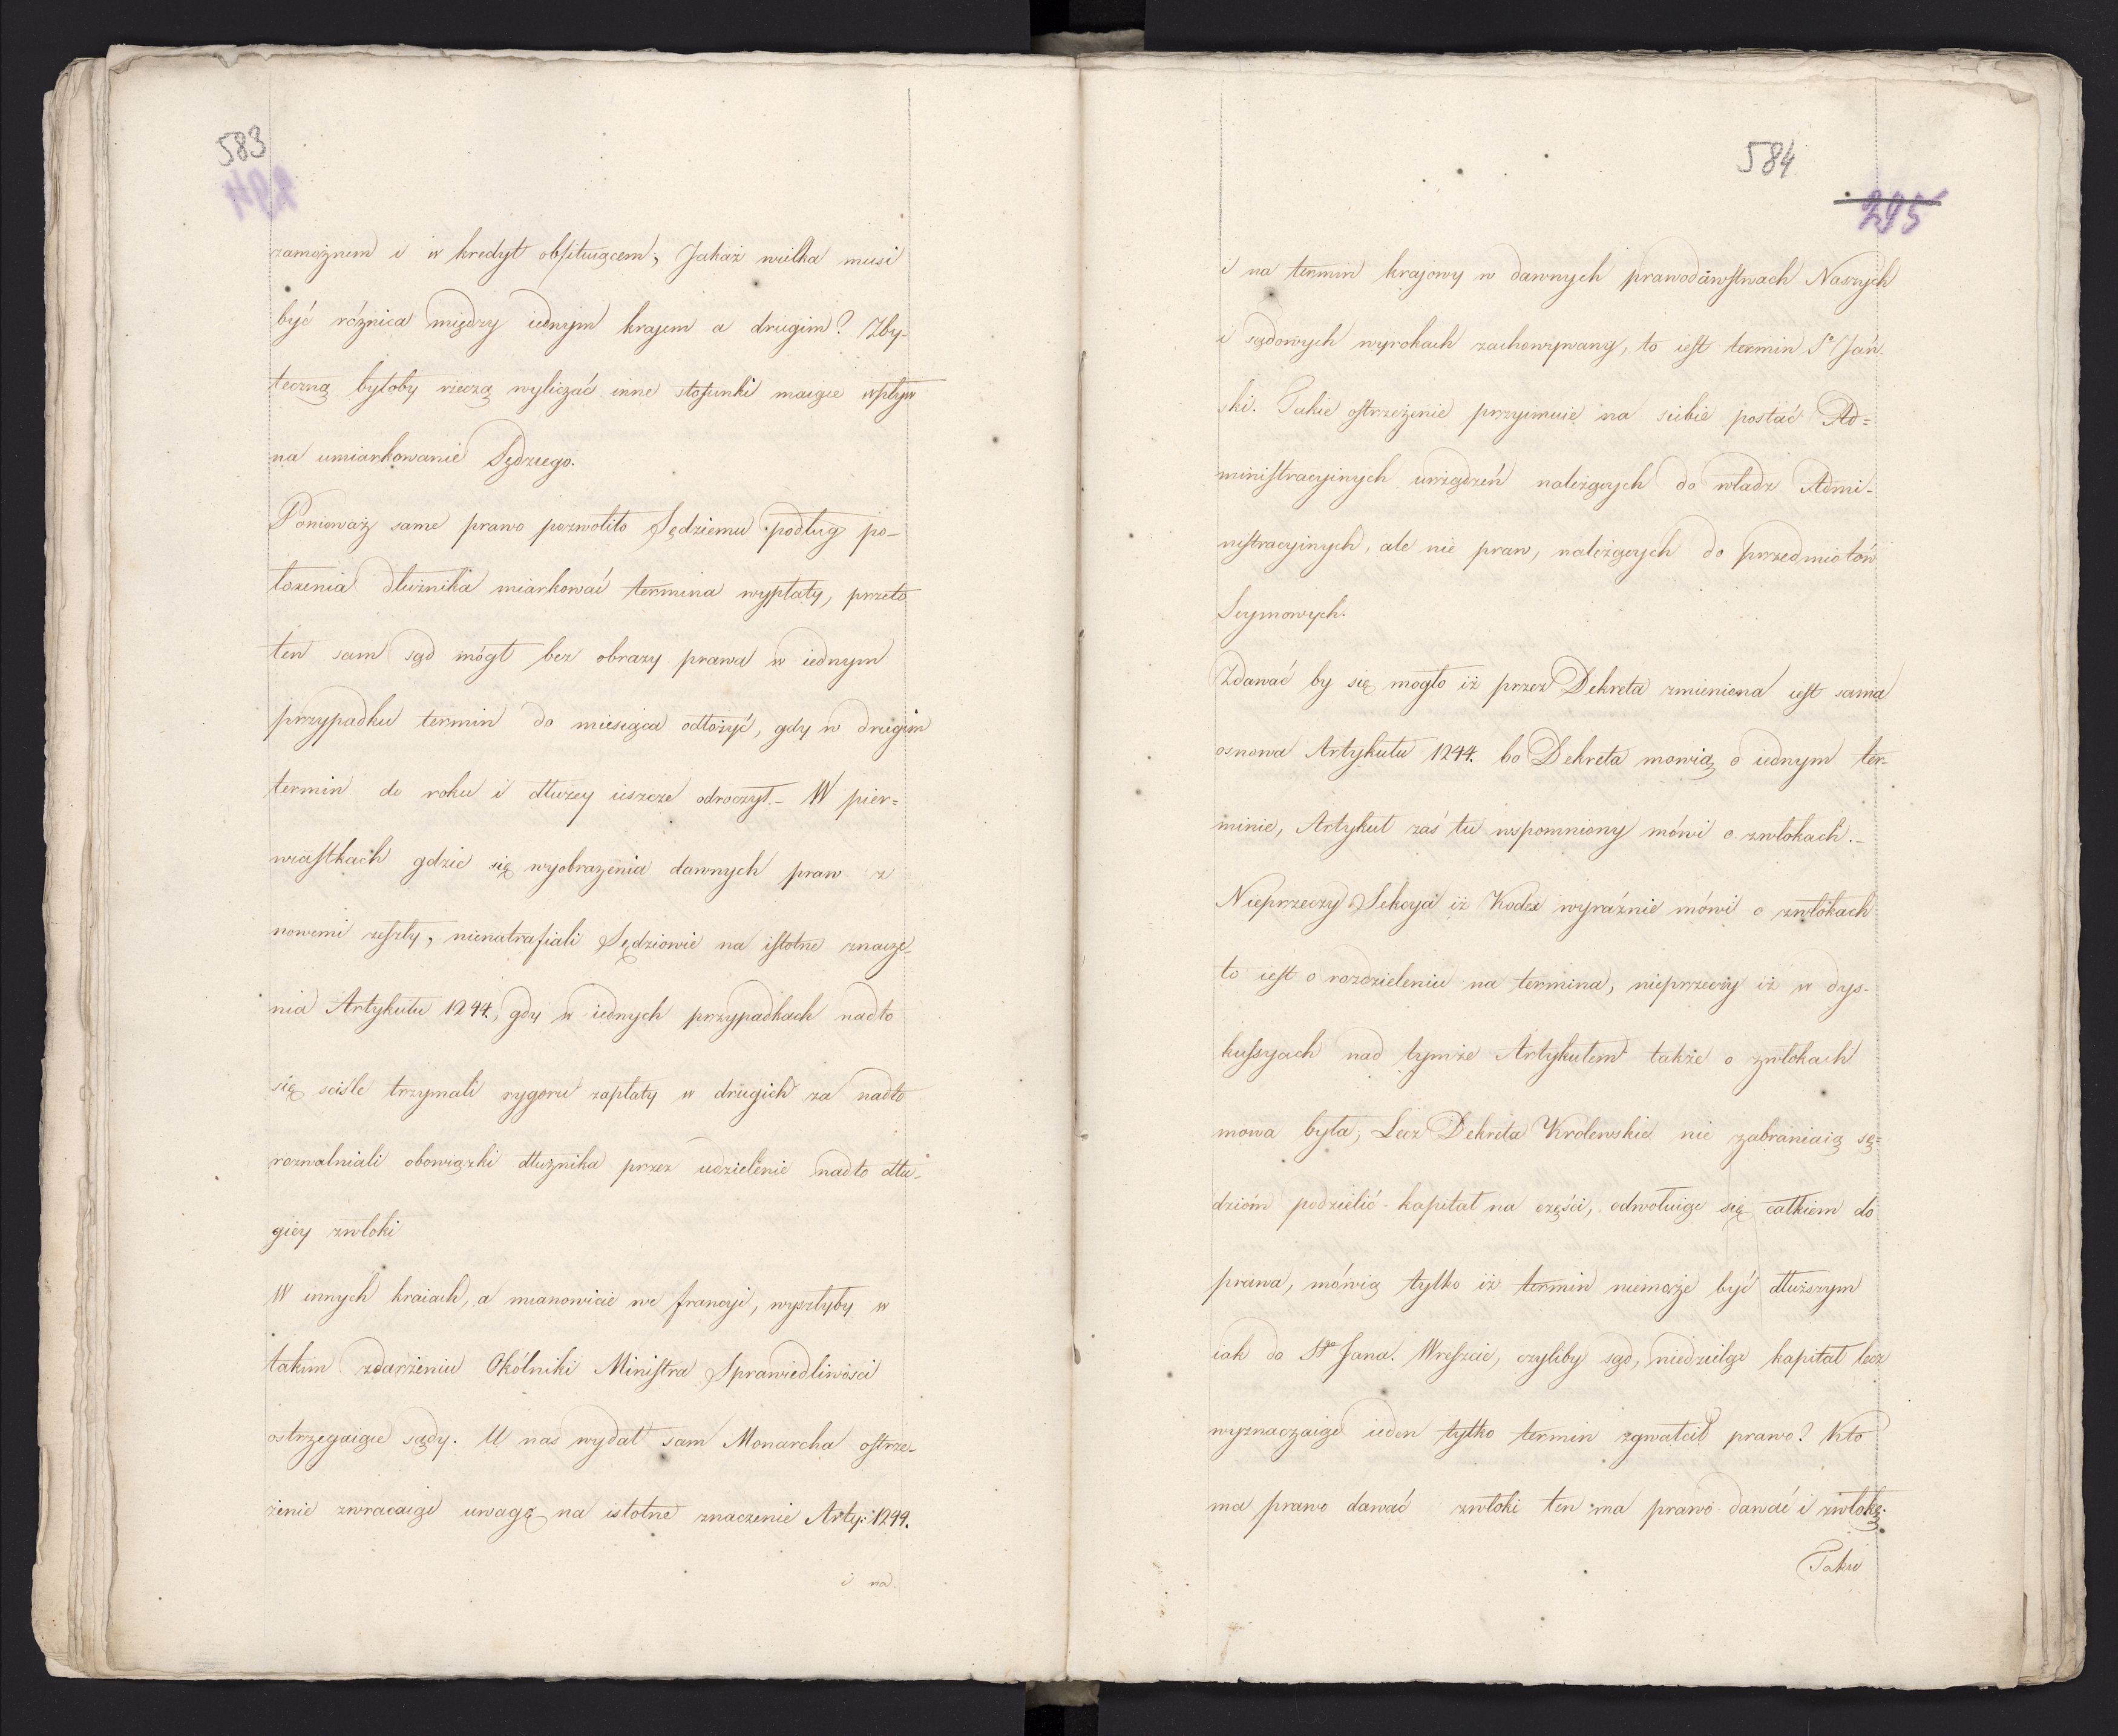 583
zamożnem i w kredyt obfituiącem; Jakaż wielka musi
być różnica między iednym krajem a drugim? Zby-
teczną byłoby rzeczą wyliczać inne stosunki maiące wpływ
na umiarkowanie Sędziego.
Ponieważ same prawo pozwoliło Sędziemu podług po-
łożenia dłużnika miarkować termina wypłaty, przeto
ten sam sąd mógł bez obrazy prawa w iednym
przypadku termin do miesiąca odłożyć, gdy w drugim
termin do roku i dłużey ieszcze odroczył.- W pier=
wiastkach gdzie się wyobrażenia dawnych praw z
nowemi zeszły, nienatrafiali Sędziowie na istotne znacze-
nia Artykułu 1244, gdy w iednych przypadkach nadto
się sciśle trzymali rygoru zapłaty w drugich za nadto
rozwalniali obowiązki dłużnika przez udzielenie nadto dłu-
giey zwłoki
W innych kraiach, a mianowicie we francyi, wyszłyby w
takim zdarzeniu Okólniki Ministra Sprawiedliwości
ostrzegaiące sądy. U nas wydał sam Monarcha ostrze-
żenie zwracaiąc uwagę na istotne znaczenie Arty: 1244.
i na
584
295
i na termin krajowy w dawnych prawodawstwach Naszych
i sądowych wyrokach zachowywany, to iest termin Sº Jań-
ski. Takie ostrzeżenie przyimuie na siebie postać Ad=
ministracyinych urządzeń należących do władz Admi-
nistracyinych, ale nie praw, należących do przedmiotów
Seymowych.
Zdawać by się mogło iż przez Dekreta zmieniona iest sama
osnowa Artykułu 1244. bo Dekreta mowią o iednym ter-
minie, Artykuł zaś tu wspomniony mówi o zwłokach.-
Nieprzeczy Sekcya iż Kodex wyraźnie mówi o zwłokach
to iest o rozdzieleniu na termina, nieprzeczy iż w dys-
kussyach nad tymże Artykułem także o zwłokach
mowa była; Lecz Dekreta Królewskie nie zabraniaią sę-
dzióm podzielić kapitał na części, odwołuiąc się całkiem do
prawa, mówią tylko iż termin niemoże być dłuższym
iak do Sgo Jana. Wreszcie, czyliby sąd, niedzieląc kapitał lecz
wyznaczaiąc ieden tylko termin zgwałcił prawo? Kto
ma prawo dawać zwłoki ten ma prawo dawać i zwłokę.
Takie